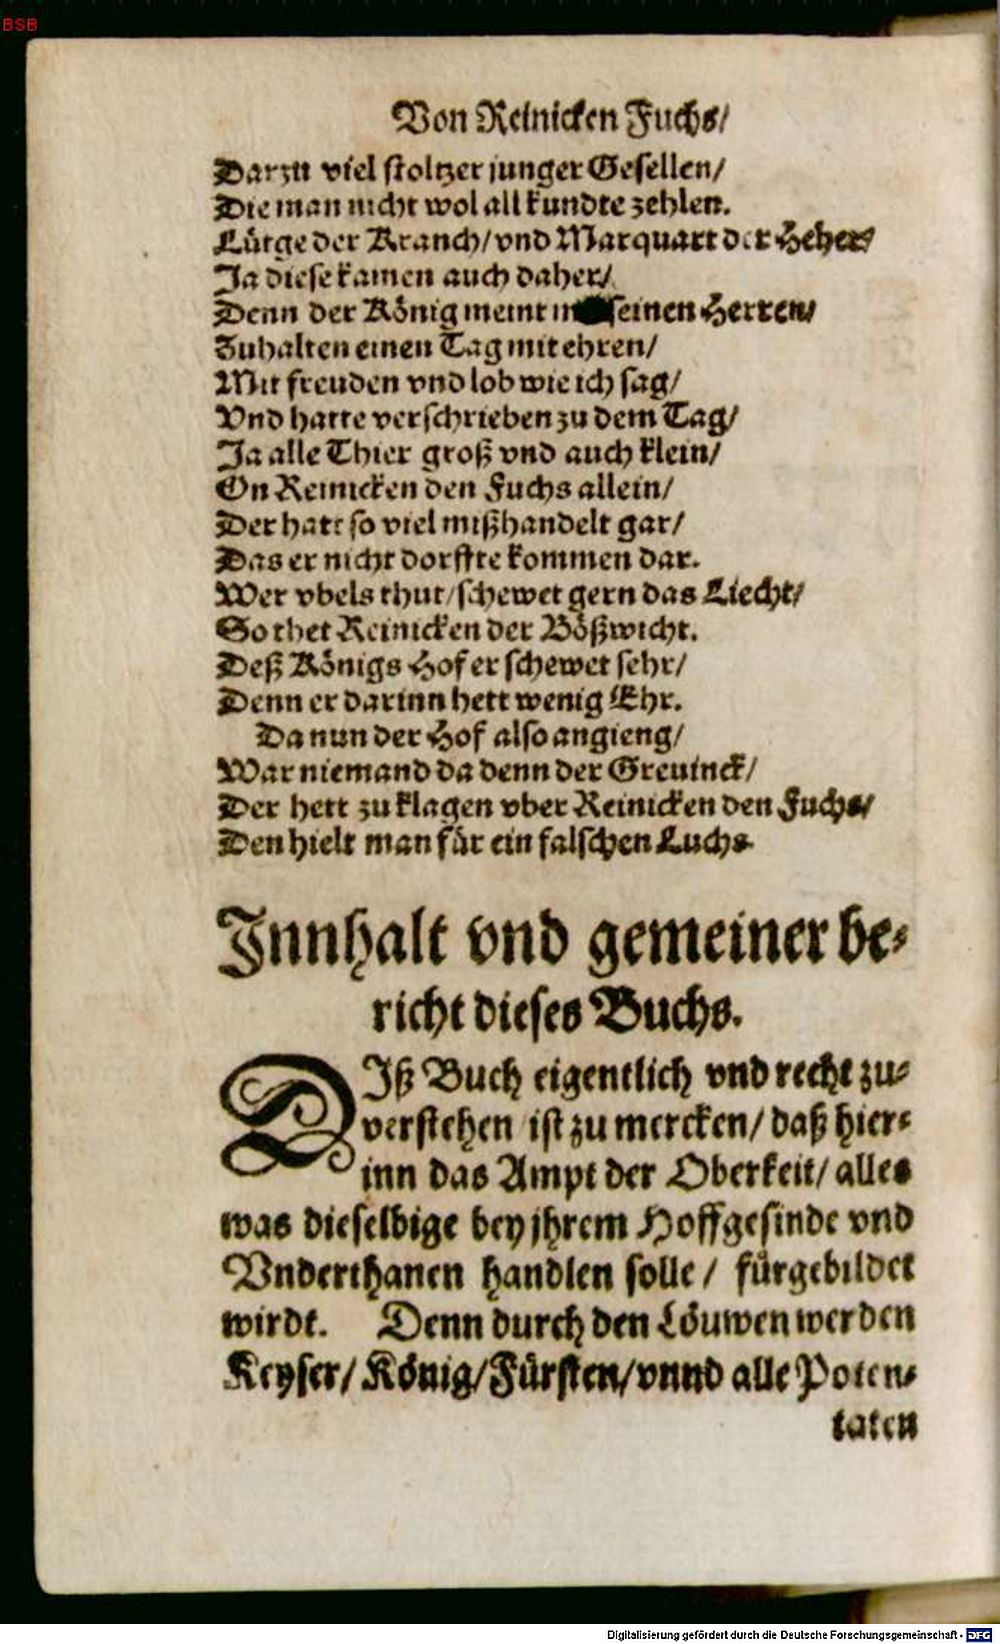 BSB
Von Reinicken Fuchs/
Darzu viel stoltzer junger Gesellen/
Die man nicht wol all kundte zehlen.
Lütge der Kranch/ vnd Marquart der Heher/
Ja diese kamen auch daher/
Denn der König meint seinen Herren/
Zuhalten einen Tag mit ehren/
Mit freuden vnd lob wie ich sag/
Vnd hatte verschrieben zu dem Tag/
Ja alle Thier groß vnd auch klein/
On Reinicken den Fuchs allein/
Der hatt so viel mißhandelt gar/
Das er nicht dorffte kommen dar.
Wer vbels thut/ schewet gern das Liecht/
So thet Reinicken der Bößwicht.
Deß Königs Hof er schewet sehr/
Denn er darinn hett wenig Ehr.
Da nun der Hof also angieng/
War niemand da denn der Greuinck/
Der hett zu klagen vber Reinicken den Fuchs/
Den hielt man für ein falschen Luchs.
Innhalt vnd gemeiner be-
richt dieses Buchs.
DIß Buch eigentlich vnd recht zu-
verstehen ist zu mercken/ daß hier-
inn das Ampt der Oberkeit/ alles
was dieselbige bey jhrem Hoffgesinde vnd
Vnderthanen handlen solle/ fürgebildet
wirdt. Denn durch den Löuwen werden
Keyser/ König/ Fürsten/ vnnd alle Poten-
taten
Digitalisierung gefördert durch die Deutsche Forschungsgemeinschaft - DFG